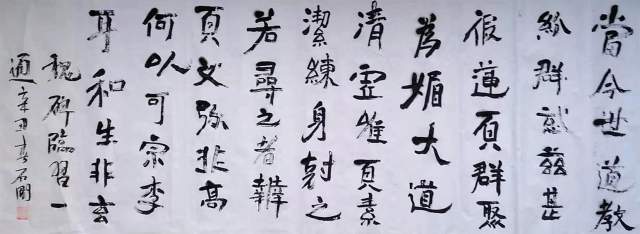 當今世道教
紛群就茲甚
假蓮頁群聚
為媚大道
清虛雅頁素
潔練身尅之
若尋之者辨
頁文弥非高
何以可宗李
耳和生非玄
魏碑臨習一
通辛丑春石開